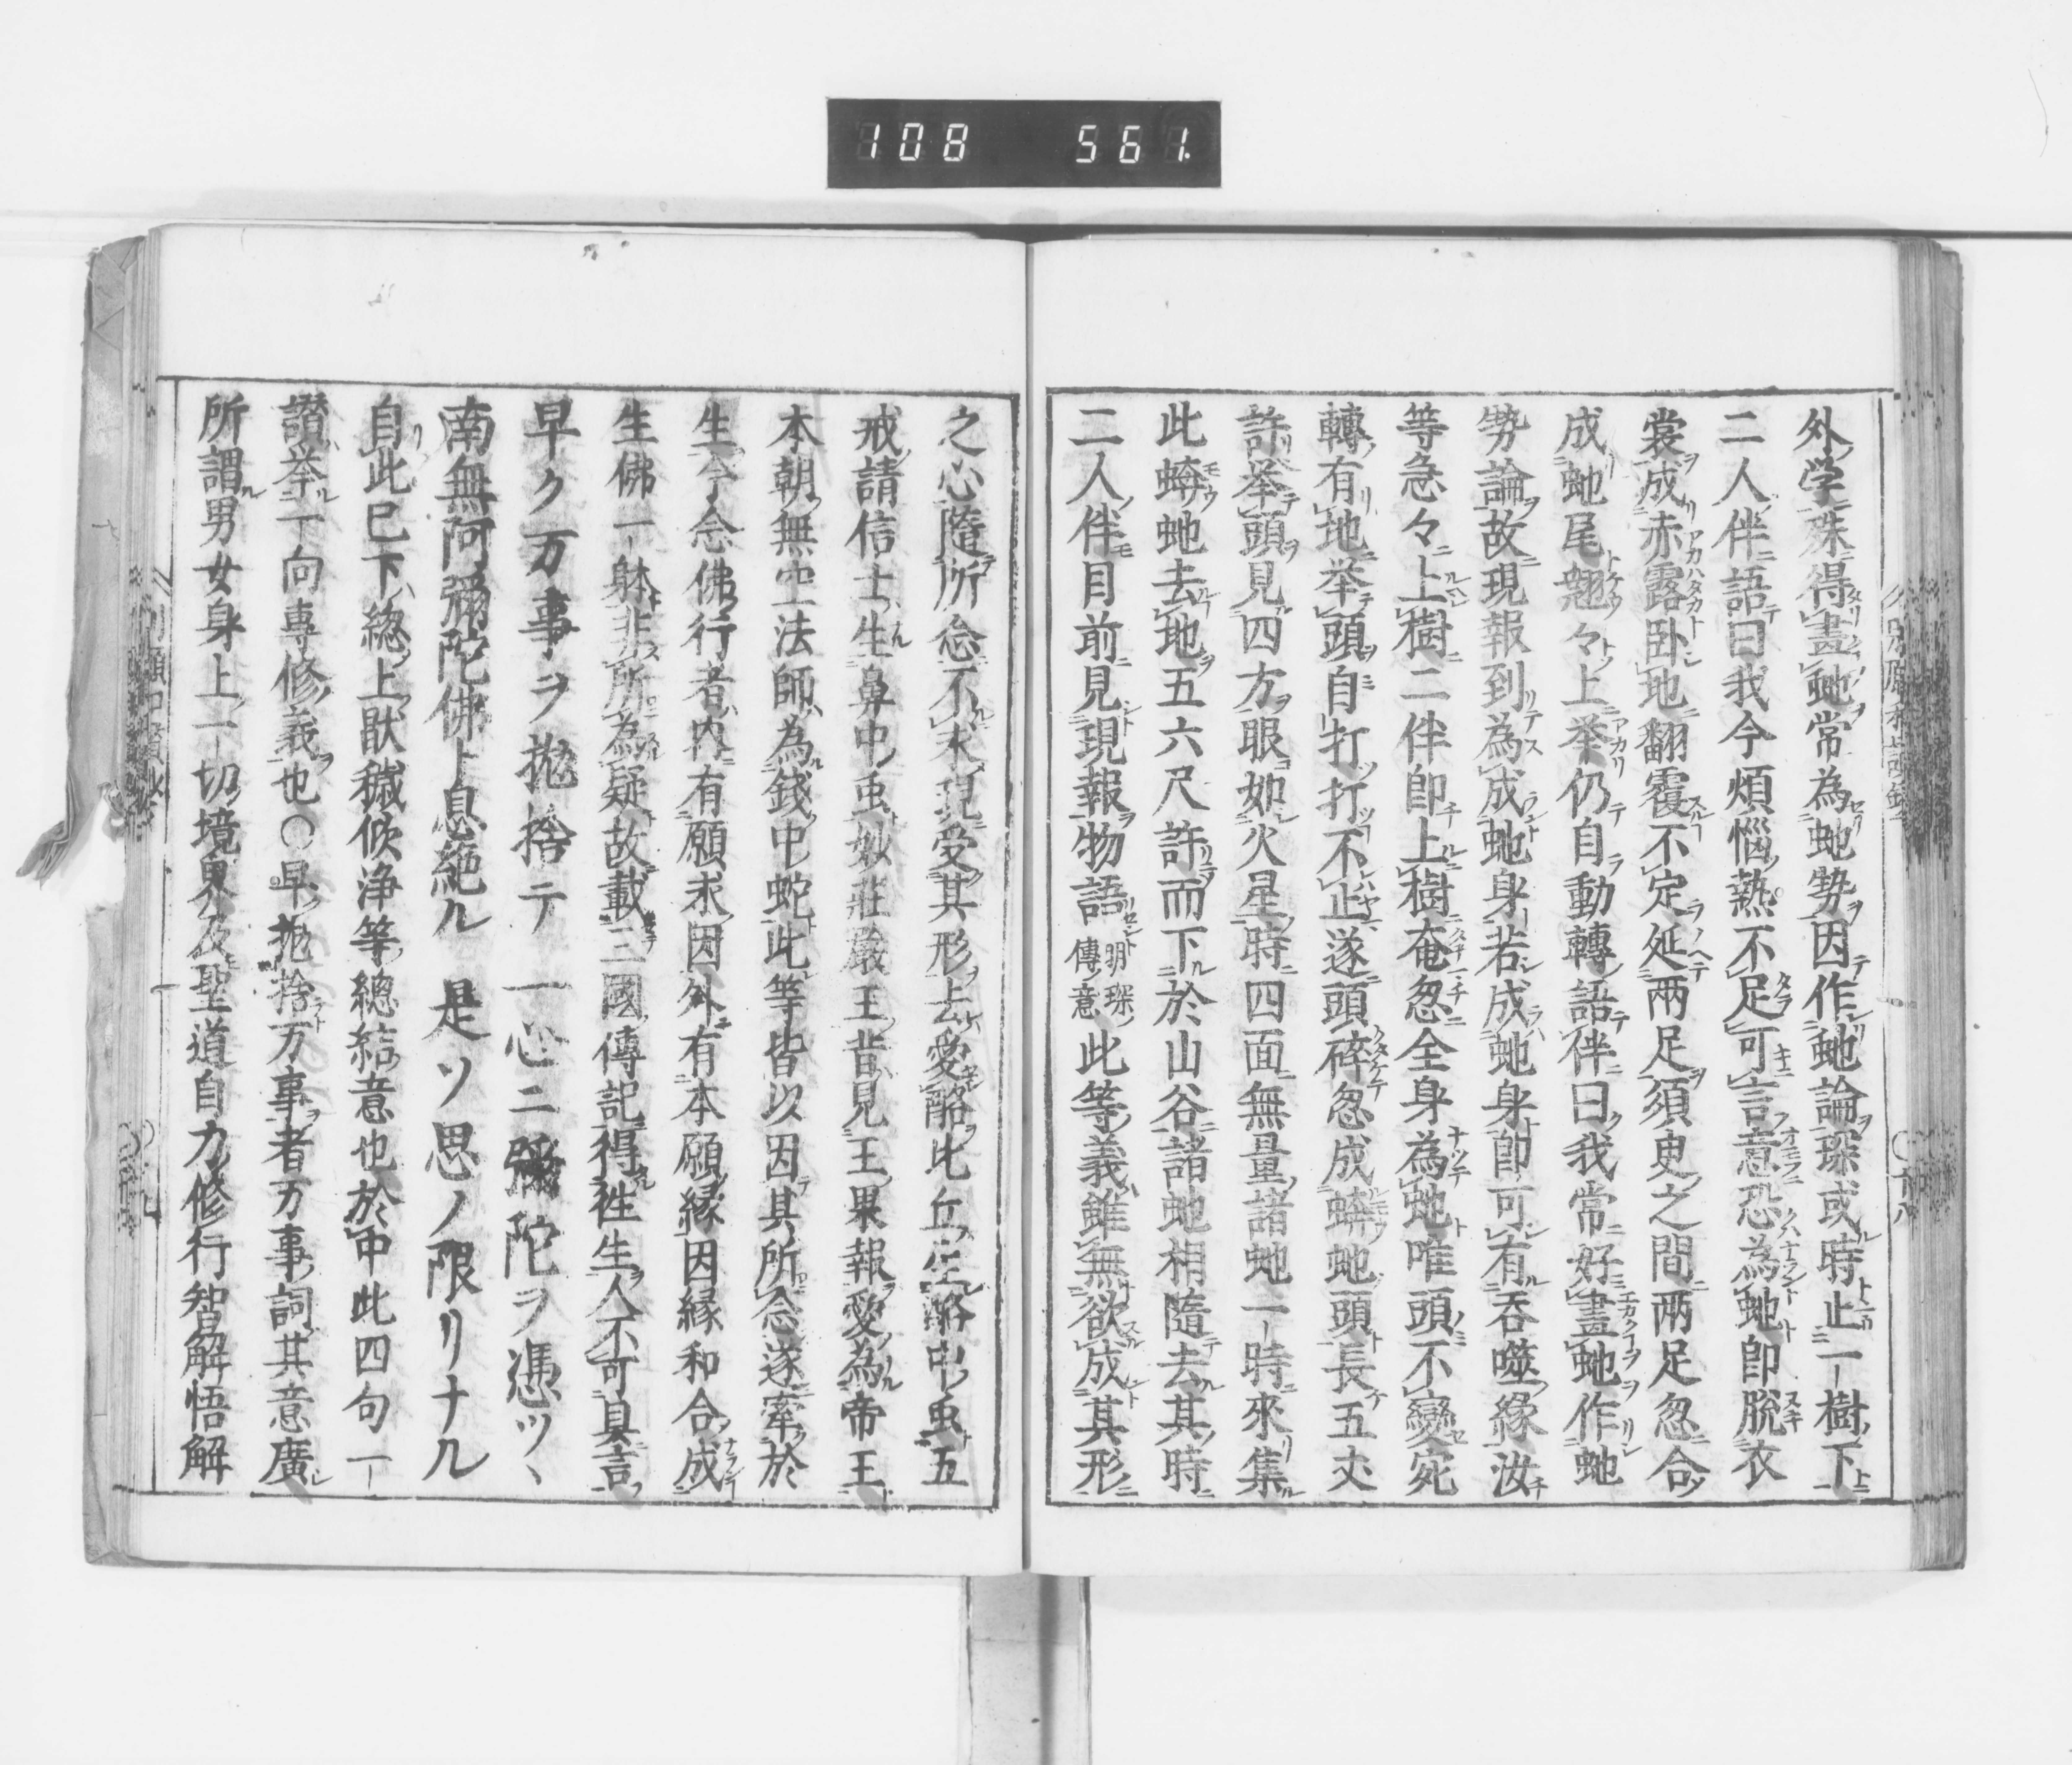 108 561.
外学殊得畫虵常為虵勢因作虵論琛或時止一樹下
二人伴語曰我今煩惱熱不足可言意恐為虵即脱衣
裳成赤露卧地翻覆不定延両足須臾之間両足忽合
成虵尾翹々上挙仍自動轉語伴曰我常好畫虵作虵
勢論故現報到為成虵身若成虵身即可有吞噬縁汝
等急々上樹二伴即上樹奄忽全身為虵唯頭不變宛
轉有地挙頭自打打不止遂頭碎忽成蟒虵頭長五丈
許挙頭見四方眼如火星時四面無量諸虵一時來集
此蟒虵去地五六尺許而下於山谷諸虵相隨去其時
二人伴目前見現報物語明琛傳意此等義雖無欲成其形
之心隨所念不求現受其形去愛酪比丘生酪中虫五
戒請信士生鼻中虫妙莊嚴王昔見王果報愛為帝王
本朝無空法師為錢中蛇此等皆以因其所念遂牽於
生今念佛行者内有願求因外有本願縁因縁和合成
生佛一躰非所為疑故載三國傳記得徃生人不可具言
早ク万事ヲ抛捨テ一心ニ彌陀ヲ憑ツヽ
南無阿彌陀佛ト息絶ル是ソ思ノ限リナル
自此已下總上猒穢欣浄等總結意也於中此四句一
讃挙一向専修義也○早抛捨万事者万事詞其意廣
所謂男女身上一切境界及聖道自力修行智解悟解